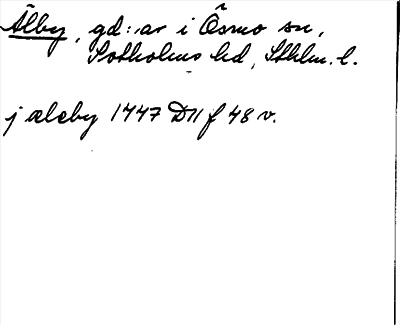 Älby, gd:ar i Ösmo sn,
Sotholms hd, Sthlm. l.
j ælæby 1447 D11 f 48 v.